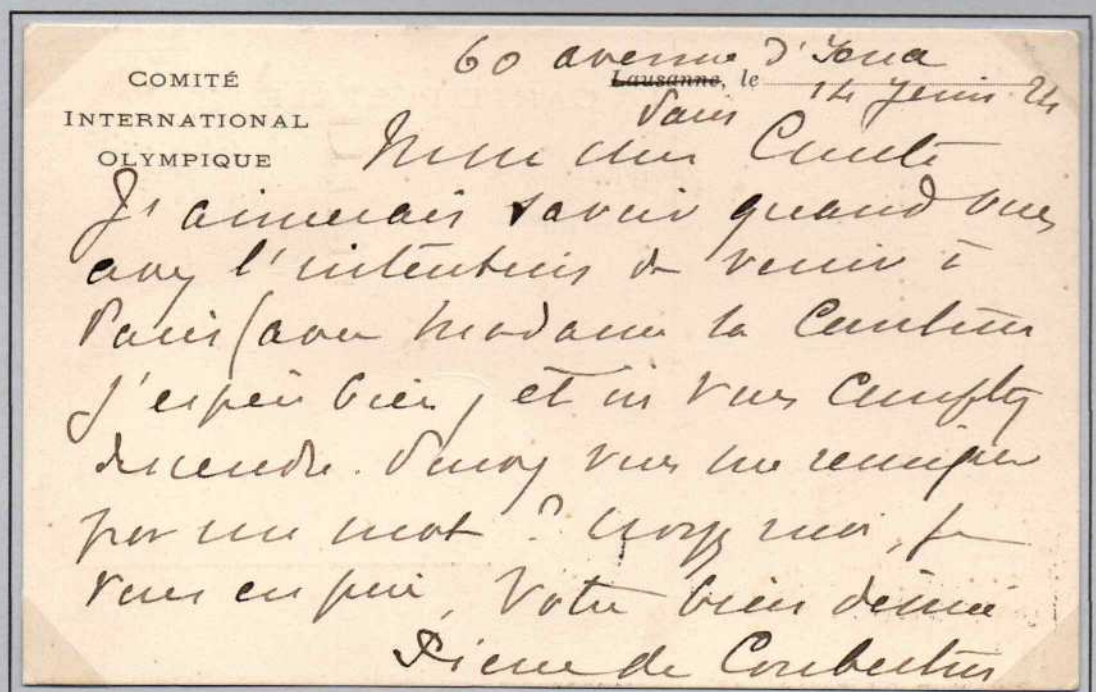 COMITÉ
INTERNATIONAL
OLYMPIQUE
60 avenue d'Iena
Lausanne, le 14 Juin 24
Paris
Mon cher Comte
J'aimerais savoir quand vous
avez l'intention de venir à
Paris (avec Madame la Comtesse
j'espère bien) et où vous comptez
descendre. Pouvez vous me renseigner
par un mot ? Croyez moi, je
vous en prie, Votre bien dévoué
Pierre de Coubertin